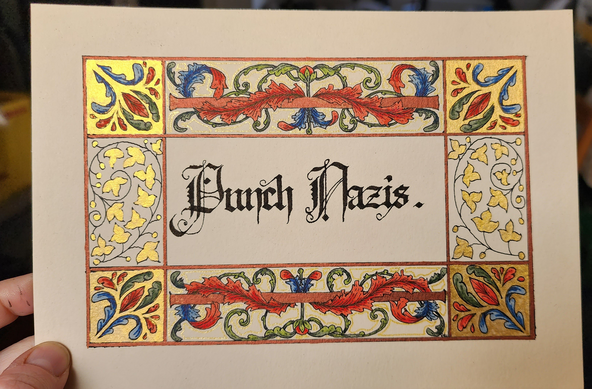 Punch Nazis.